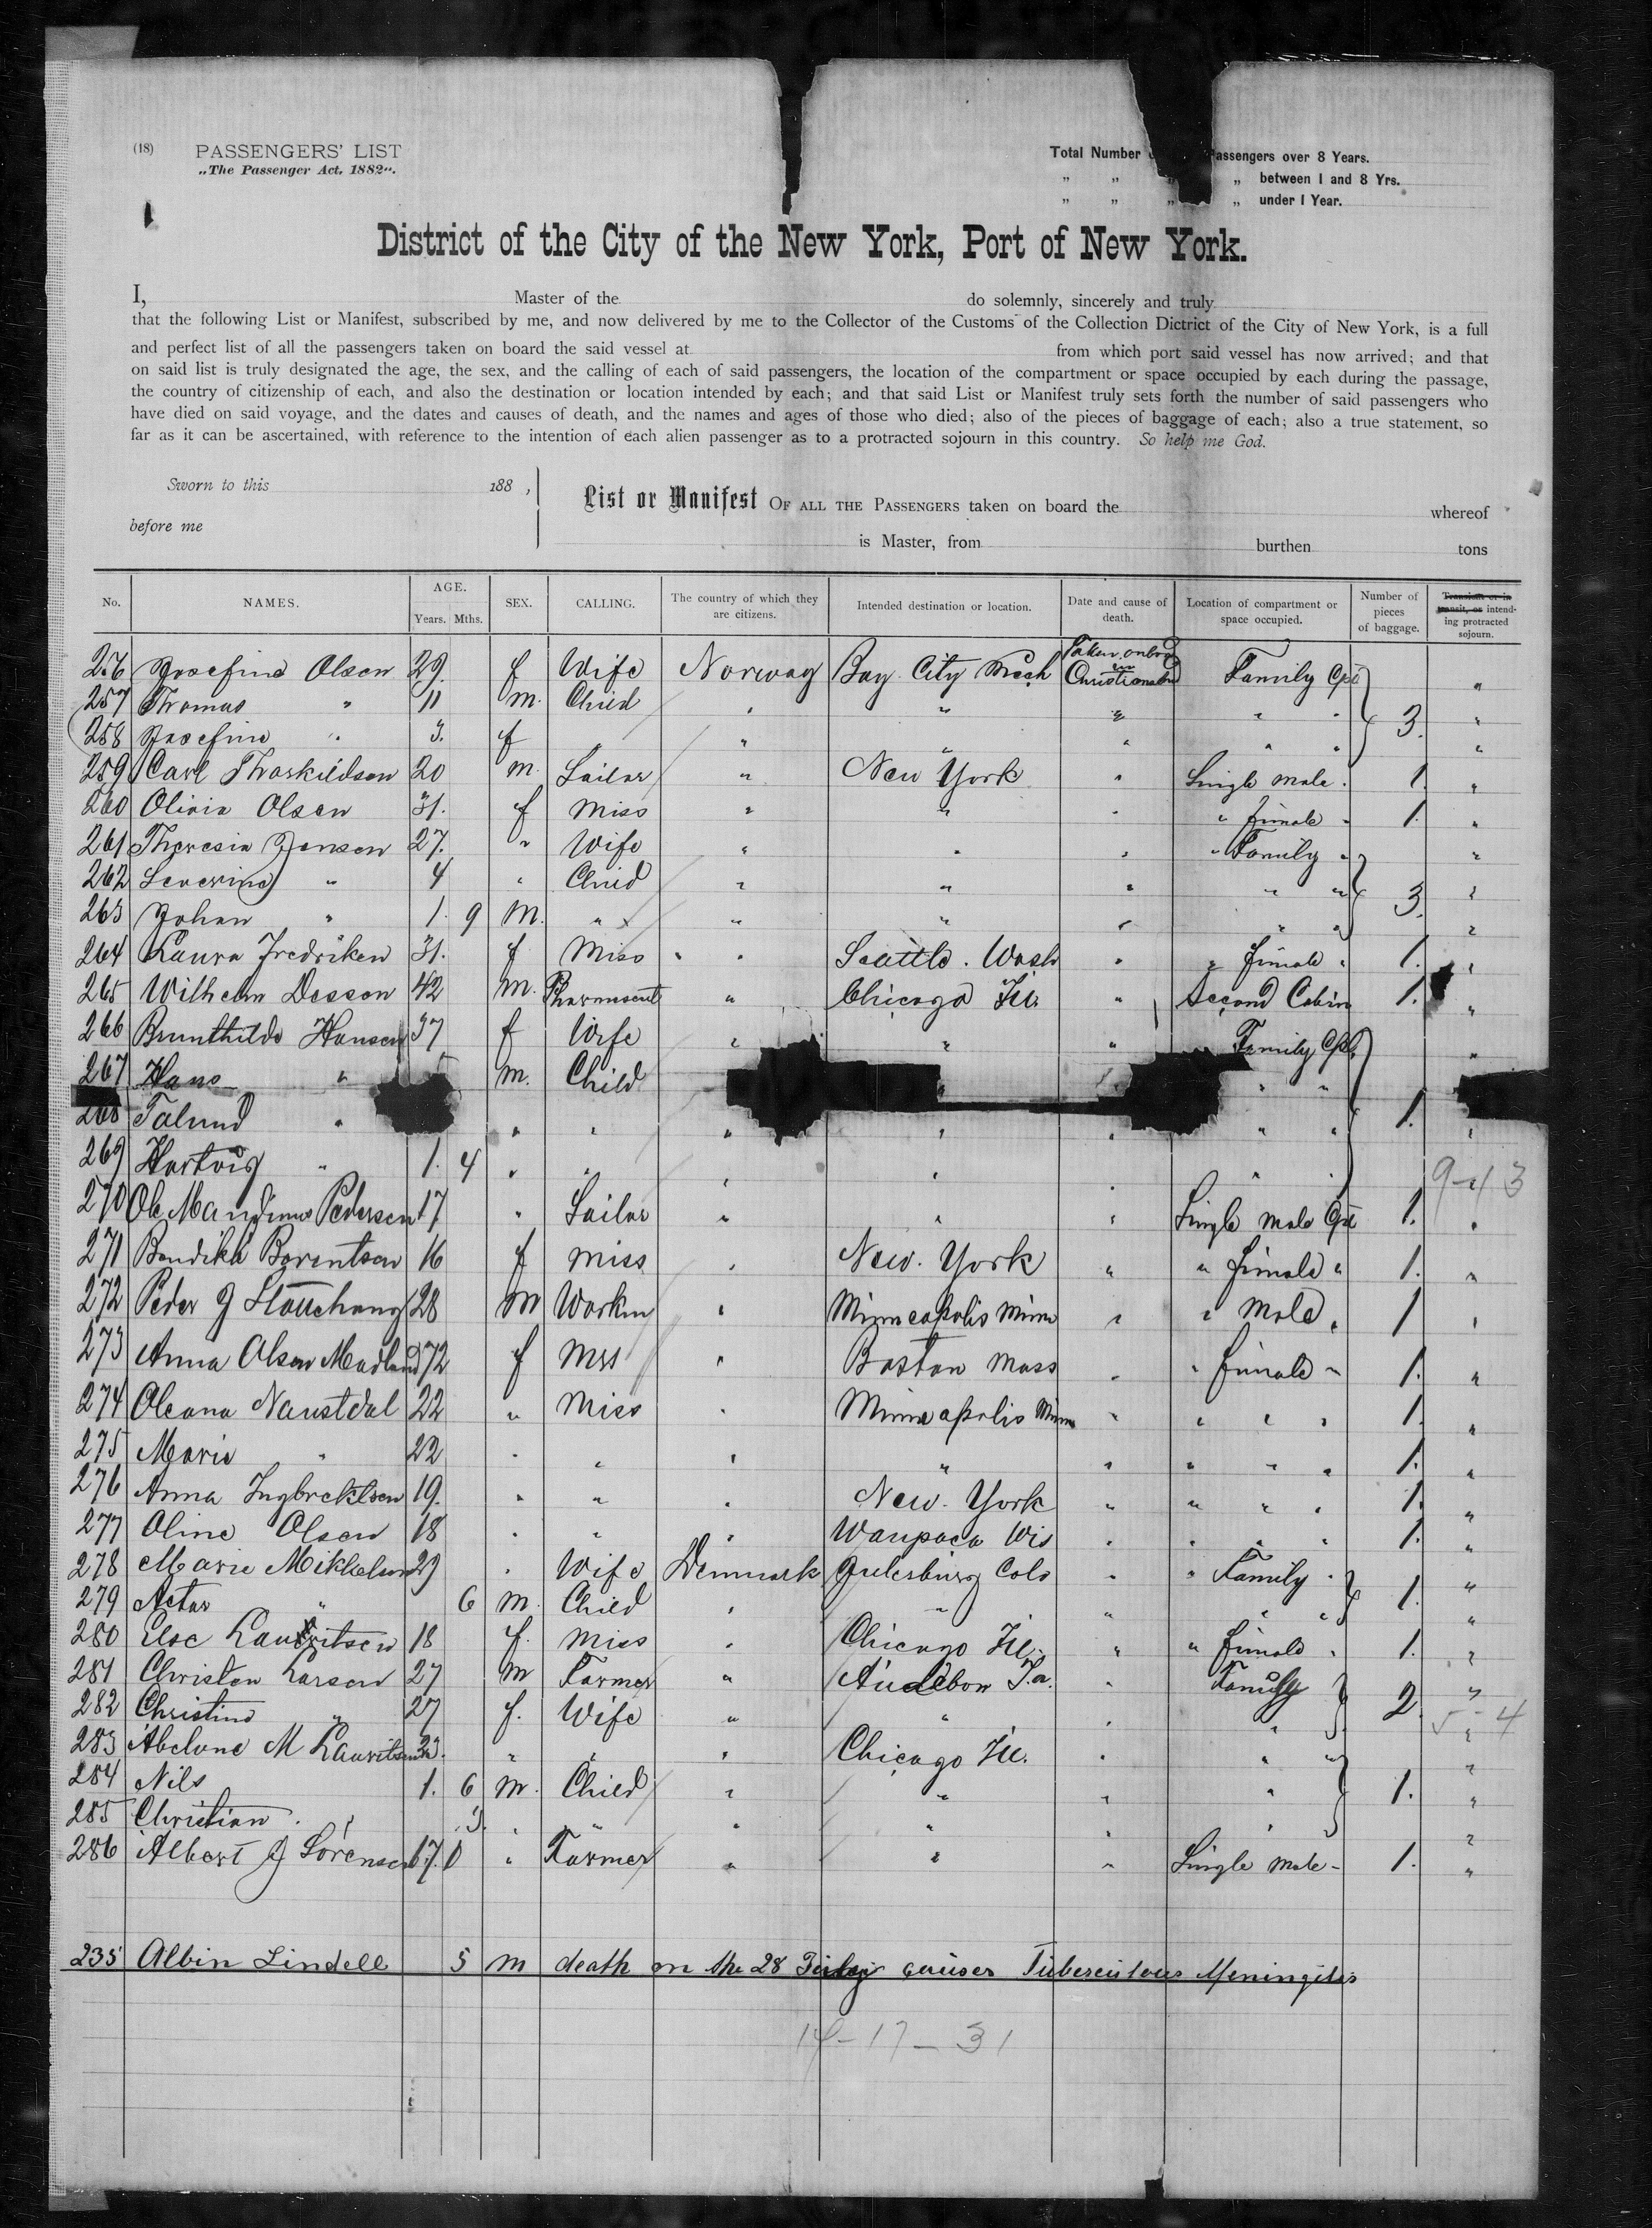 (18) PASSENGERS' LIST
„The Passenger Act, 1882“.
Total Number Passengers over 8 Years.
„ „ „ „ between 1 and 8 Yrs.
„ „ „ „ under 1 Year.
District of the City of the New York, Port of New York.
I, Master of the do solemnly, sincerely and truly
that the following List or Manifest, subscribed by me, and now delivered by me to the Collector of the Customs of the Collection Dictrict of the City of New York, is a full
and perfect list of all the passengers taken on board the said vessel at from which port said vessel has now arrived; and that
on said list is truly designated the age, the sex, and the calling of each of said passengers, the location of the compartment or space occupied by each during the passage,
the country of citizenship of each, and also the destination or location intended by each; and that said List or Manifest truly sets forth the number of said passengers who
have died on said voyage, and the dates and causes of death, and the names and ages of those who died; also of the pieces of baggage of each; also a true statement, so
far as it can be ascertained, with reference to the intention of each alien passenger as to a protracted sojourn in this country. So help me God.
Sworn to this 188 ,
before me
List or Manifest OF ALL THE PASSENGERS taken on board the whereof
is Master, from burthen tons
No. NAMES. AGE. Years. Mths. SEX. CALLING. The country of which they are citizens. Intended destination or location. Date and cause of death. Location of compartment or space occupied. Number of pieces of baggage. Transient or in transit, or intending protracted sojourn.
256 Josefine Olsen 29. f Wife Norway Bay City Mich Taken onbrd in Christiansand Family Cpt "
257 Thomas " 11 m. Child " " " " " 3. "
258 Josefine " 3. f " " " " " "
259 Carl Thorkildsen 20 m. Sailor " New York " Single male " 1. "
260 Olivia Olsen 31. f Miss " " " " female " 1. "
261 Theresia Jensen 27. " Wife " " " " Family " "
262 Severine " 4 " Child " " " " " 3. "
263 Johan " 1. 9 m. " " " " " " "
264 Laura Fredriksen 31. f Miss " Seattle. Wash " " female " 1. "
265 Wilhelm Dessen 42 m. Pharmaceut " Chicago Ill. " Second Cabin 1. "
266 Brunthilde Hansen 37 f Wife " " " Family Cpt. "
267 Hans " m. Child " "
268 Talund " " " " " " " " 1. "
269 Hartvig " 1. 4 " " " " " " " "
9-43
270 Ole Mandinus Pedersen 17 " Sailor " " " Single male Cpt 1. "
271 Bendikk Berentsen 16 f Miss " New. York " " female " 1. "
272 Peder J 28 m Workm " Minneapolis Minn " " male " 1 "
273 Anna Olsen Madland 72 f Mrs " Boston Mass " " female " 1. "
274 Oleana Naustdal 22 " Miss " Minneapolis Minn " " " " 1. "
275 Marie " 22 " " " " " " " " 1. "
276 Anna Ingbrektsen 19. " " " New. York " " " " 1. "
277 Oline Olsen 18 " " " Waupaca Wis " " " " 1. "
278 Marie Mikkelsen 29 " Wife Denmark Julesburg Colo " " Family " "
279 Actor " 6 m. Child " " " " " 1. "
280 Else Lauritsen 18 f. Miss " Chicago Ill. " " female " 1. "
281 Christen Larsen 27 m Farmer " Audebon Ia. " Family "
282 Christine " 27 f. Wife " " " " 2. "
5-4
283 Abelone M Lauritsen 23. " " " Chicago Ill. " " " "
284 Nils 1. 6 m. Child " " " " 1. "
285 Christian " 3. " " " " " " "
286 Albert J Sörensen 17. " Farmer " " " Single male - 1. "
235 Albin Lindell 5 m death on the 28 causes Tuberculous Meningitis
14-17-31